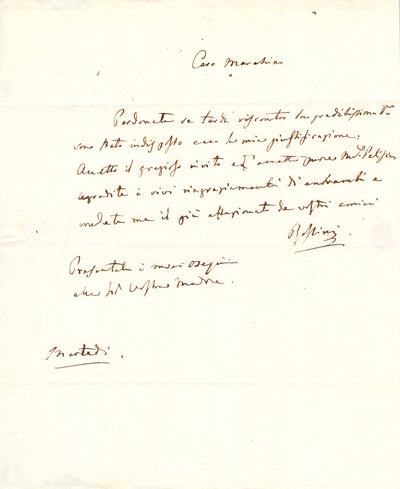 Caro Marchino
Perdonate se tardi riscontro la graditissima V.ra
sono stato indisposto ecco la mia giustificazione,
Accetto il grazioso invito e l'accetta pure M.e Pelissier
aggradite i vivi ringraziamenti di entrambi e
credete me il più affezionato de vostri amici
Rossini.
Presentate i miei ossequi
alla Sig.a vostra Madre.
Martedì.